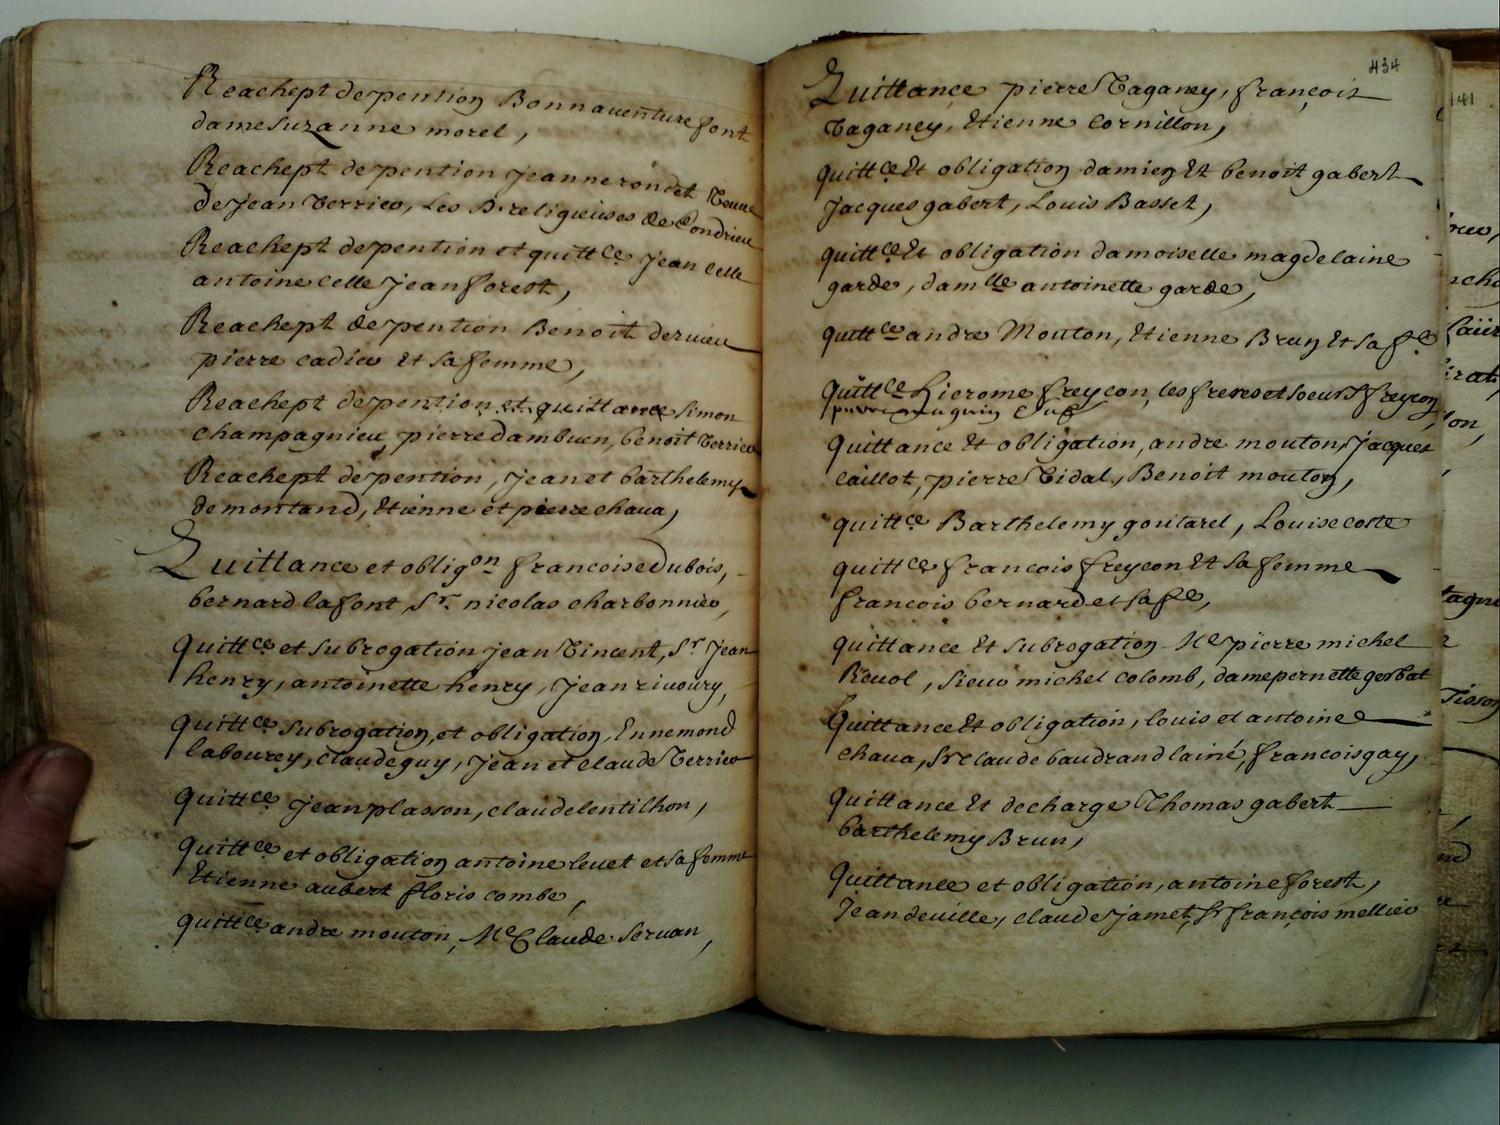 Reachept de pention Bonnauenture font
dame Suzanne morel,
Reachept de pention jeanne rondet veuue
de jean Verrieu, Les D. religieuses de Condrieu
Reachept de pention et quittce jean celle
antoine celle jean forest,
Reachept de pention Benoit deruieu
pierre cadieu Et sa femme,
Reachept de pention et quittance Simon
champagnieu, pierre dambuen, benoit Verrieu
Reachept de pention, jean et barthelemy
demontand, Etienne et pierre chaua,
Quittance et obligon francoise Dubois,
bernard lafont, Sr. nicolas charbonnieu,
quittce et subrogation jean Vincent, Sr jean
henry, antoinette henry, jean riuoury,
quittce subrogation, et obligation, Ennemond
labourey, claude guy, jean et claude Verrieu
quittce jean plasson, claude lentilhon,
quittce et obligation antoine leuet et sa femme
Etienne aubert floris combe,
quittce andre mouton, Me Claude Seruan,
434
Quittance pierre Vaganey, françois
Vaganey, Etienne Cornillon,
quittce Et obligation damien Et benoit gabert
jacques gabert, Louis Basset,
quittce Et obligation damoiselle magdelaine
garde, damlle antoinette garde,
quittce andre Mouton, Etienne Brun Et sa fe
quittce hierome freycon, les freres et soeurs freycon
quittance Et obligation, andre mouton, jacques
caillot, pierre Vidal, Benoit mouton,
quittce Barthelemy goutarel, Louise coste
quittce francois freycon Et sa femme
francois bernard et sa fe,
quittance Et subrogation Me pierre michel
Reuol, sieur michel colomb, dame pernette gerbat
quittance Et obligation, louis et antoine
chaua, Sr claude baudrand lainé, francois gay,
quittance Et decharge Thomas gabert
barthelemy Brun,
quittance et obligation, antoine forest,
jean deuille, claude jamet, Sr françois mellieu